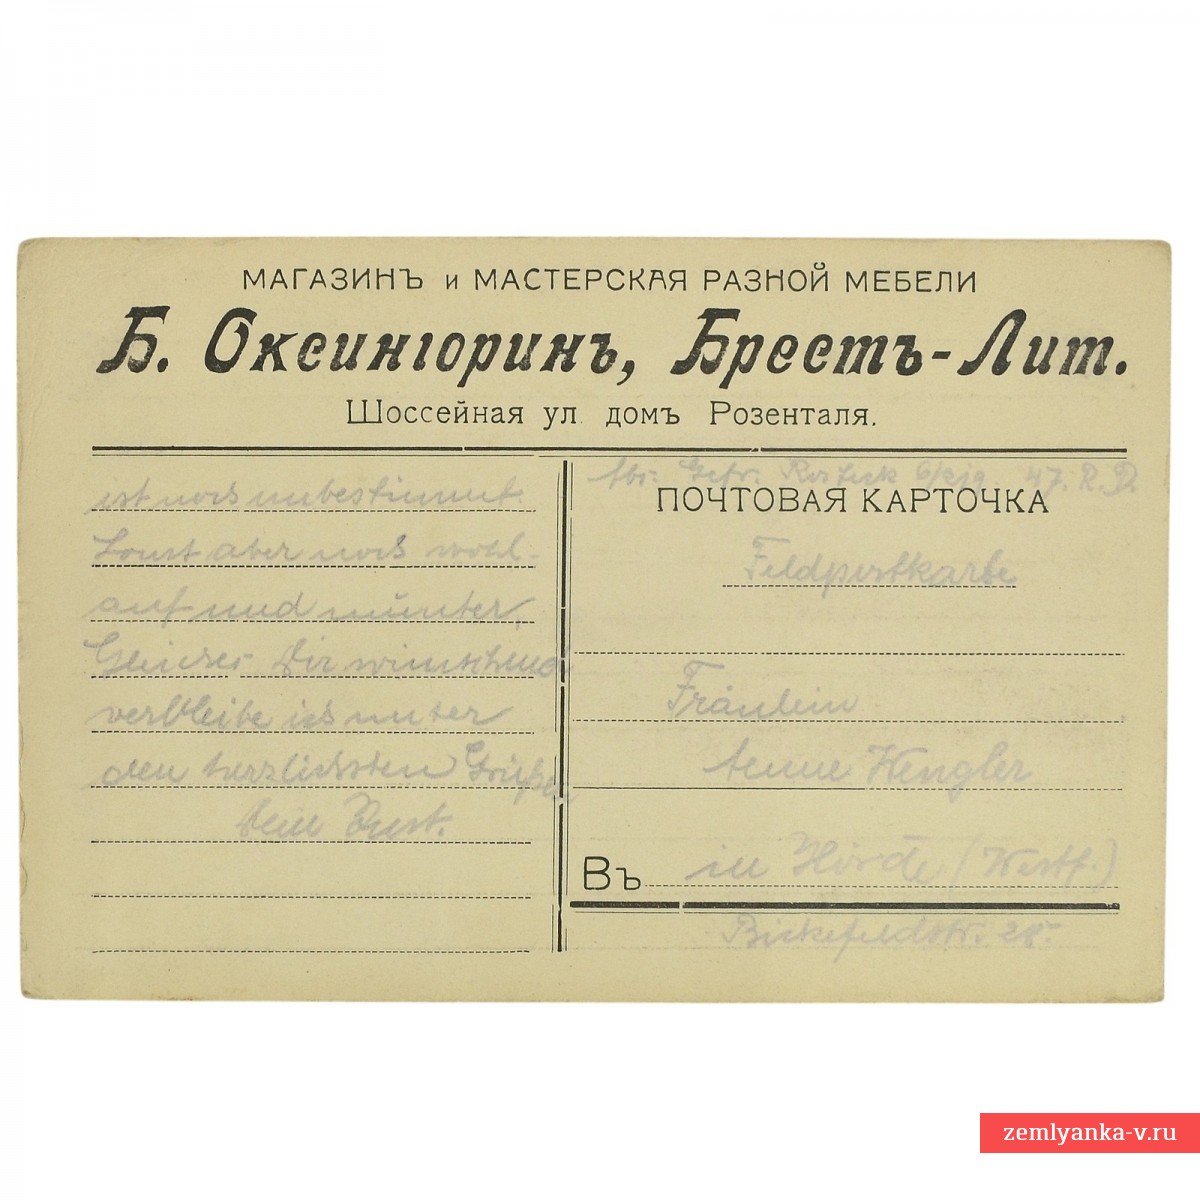 МАГАЗИНЪ и МАСТЕРСКАЯ РАЗНОЙ МЕБЕЛИ
Б. Оксингоринъ, Брестъ-Лит.
Шоссейная ул. домъ Розенталя.
ist noch unbestimmt.
Sonst aber noch wohl-
auf und munter,
Gleiches Dir wünschend
verbleibe ich unter
den herzlichsten Grüßen
Dein
Abs. Gefr. 47. R.D.
ПОЧТОВАЯ КАРТОЧКА
Feldpostkarte
Fräulein
Aenne Hengler
Въ in Hörde (Westf.)
Bickefeldstr. 28.
zemlyanka-v.ru